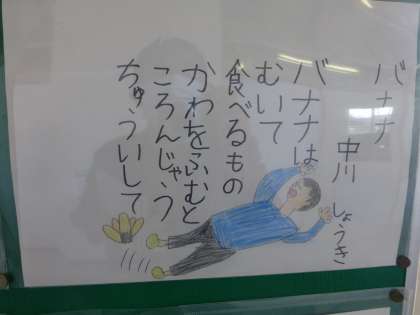 バナナ
中川 しょうき
バナナは
むいて
食べるもの
かわをふむと
ころんじゃう
ちゅういして